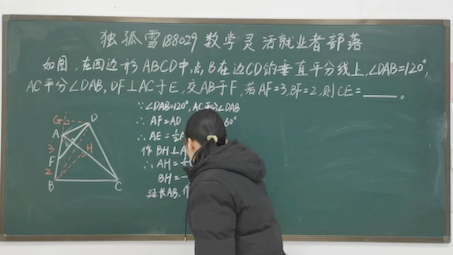 独孤雪188029数学灵活就业者部落
如图,在四边形ABCD中,点B在边CD的垂直平分线上,∠DAB=120°,
AC平分∠DAB,DF⊥AC于E,交AB于F,若AF=3,BF=2,则CE=____.
∵∠DAB=120°,AC平分∠DAB
∴AF=AD 60°
∴AE=½A
作BH⊥A
∴AH=
BH=
延长AB,
G
D
A
3
H
F
2
B
C